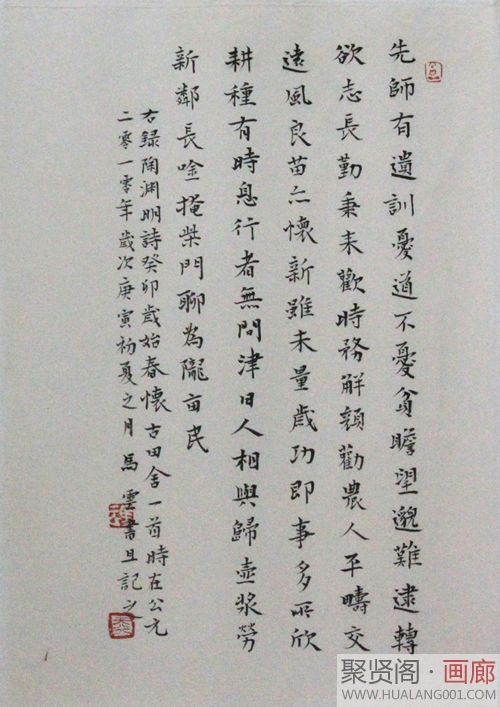 先師有遺訓憂道不憂貧瞻望邈難逮轉
欲志長勤秉耒歡時務解顏勸農人平疇交
遠風良苗亦懷新雖未量歲功即事多所欣
耕種有時息行者無問津日入相與歸壺漿勞
新鄰長唫掩柴門聊為隴亩民
右録陶淵明詩癸卯歲始春懷古田舍一首時在公元
二零一零年歲次庚寅初夏之月馬雲書且記之
聚贤阁·画廊
WWW.HUALANG001.COM